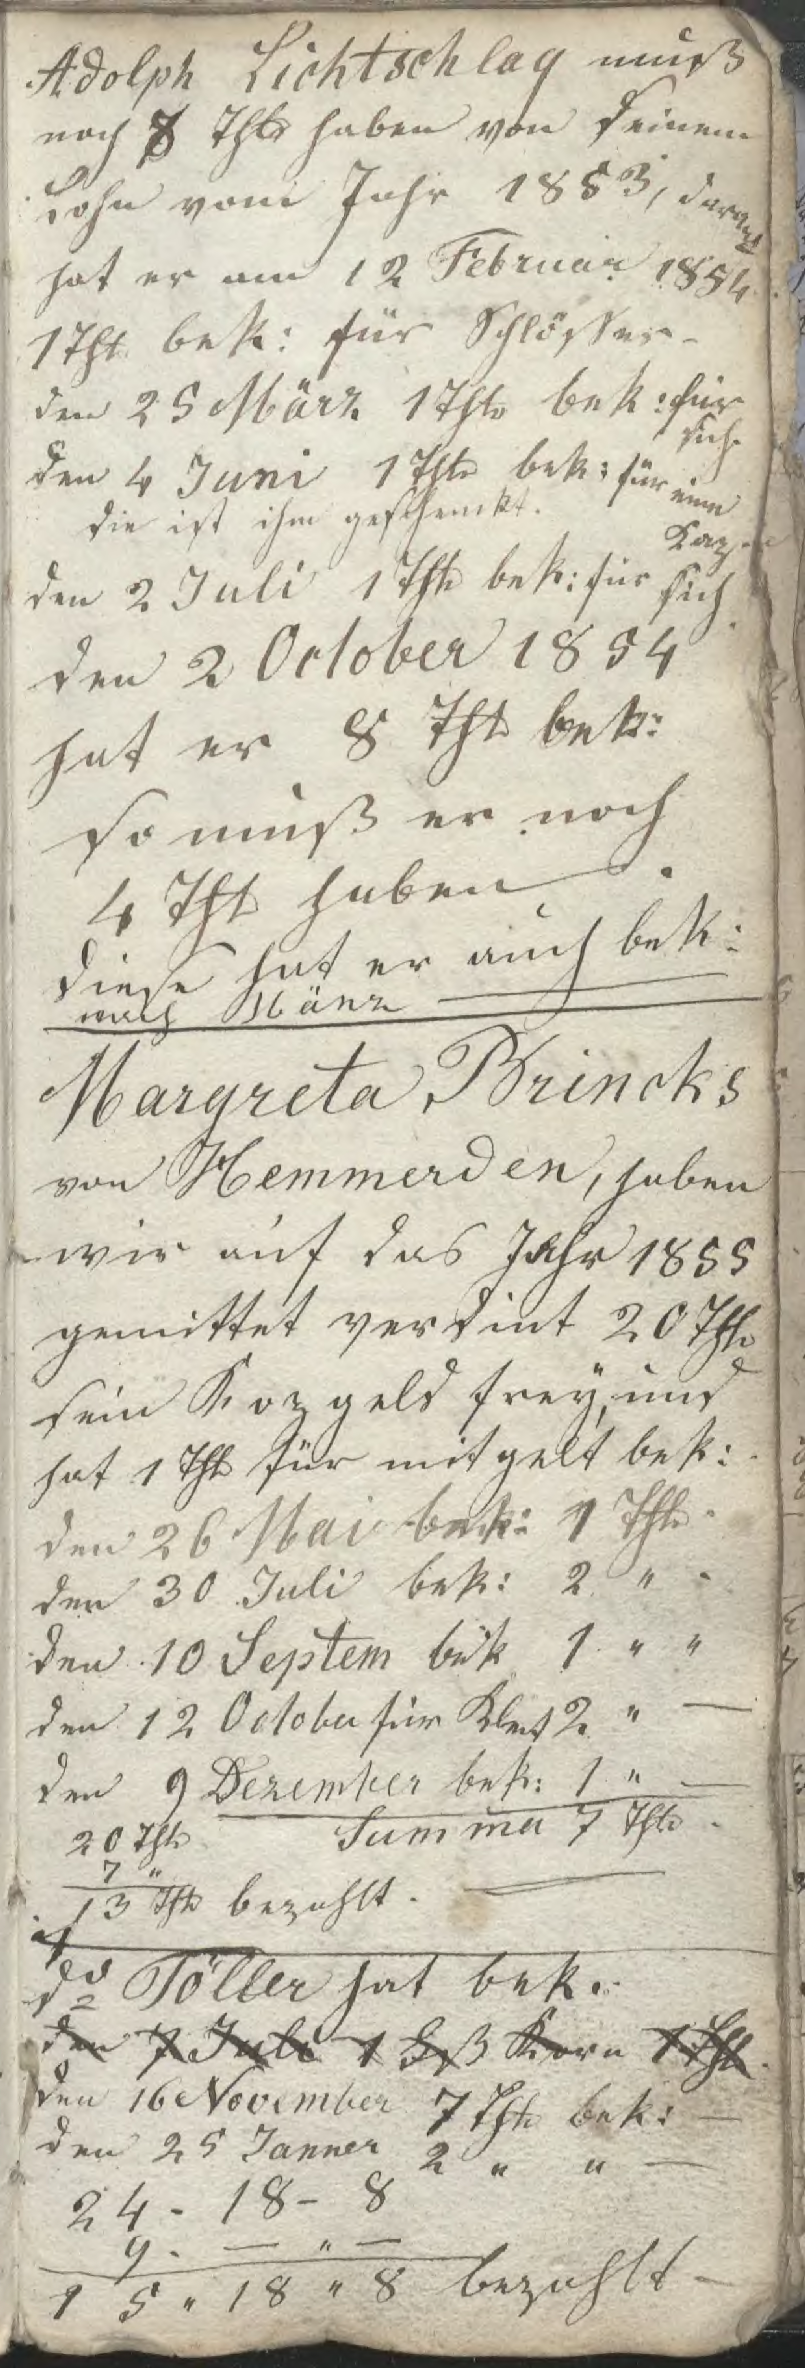 Adolph Lichtschlag muß
noch 8 Thlr haben von seinem
Lohn vom Jahr 1853, darauf
hat er am 12 Februar 1854
1 Thlr bek: für Schlösser -
den 25 März 1 Thlr bek: für
sich
den 4 Juni 1 Thlr bek: für eine
Kap
die ist ihm geschenckt.
den 2 Juli 1 Thlr bek: für sich
den 2 October 1854
hat er 8 Thlr bek:
so muß er noch
4 Thlr haben.
diese hat er auch bek:
nach März
Margreta Brincks
von Hemmerden, haben
wir auf das Jahr 1855
gemittet verdint 20 Thlr
sein Kopgeld frey, und
hat 1 Thlr für mitgelt bek:
den 26 Mai bek: 1 Thlr -
den 30 Juli bek: 2 " -
den 10 Septem bek 1 " "
den 12 October für 2 " —
den 9 Dezember bek: 1 " —
20 Thlr Summa 7 Thlr -
7 "
13 Thlr bezahlt.
do Töller hat bek:
den 7 Juli 1 Korn 1 Thlr
den 16 November 7 Thlr bek: —
den 25 Janner 2 " " —
24 - 18 - 8
9 - — " —
15 " 18 " 8 bezahlt —